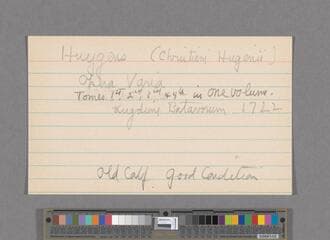 Huygens (Christiani Hugenii)
Opera Varia
Tomes 1st 2nd, 3rd & 4th in one volume.
Lugduni Batavorum 1722
Old Calf. Good Condition